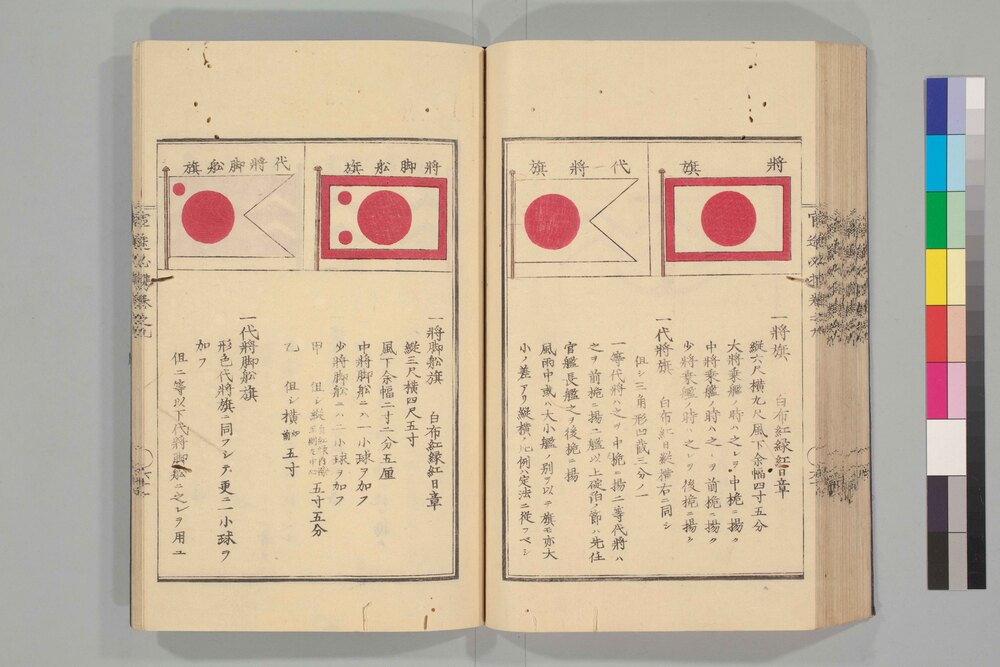 將旗
代將旗
一將旗　白布紅緣紅日章
縱六尺橫九尺風下余幅四寸五分
大將乘艦ノ時ハ之レヲ中桅ニ揚ク
中將乘艦ノ時ハ之レヲ前桅ニ揚ク
少將乘艦ノ時ハ之レヲ後桅ニ揚ク
一代將旗　白布紅日縱橫右ニ同シ
但シ三角形凹裁三分ノ一
一等代將ハ之ヲ中桅ニ揚ニ等代將ハ
之ヲ前桅ニ揚ニ艦以上碇泊ノ節ハ先任
官艦長艦之ヲ後桅ニ揚
風雨中或ハ大小艦ノ別ヲ以テ旗モ亦大
小ノ差アリ縱橫ノ比例ハ定法ニ從フベシ
將脚舩旗
代將脚舩旗
一將脚舩旗　白布紅緣紅日章
縱三尺橫四尺五寸
風下余幅二寸二分五厘
中將脚舩ニハ一小球ヲ加フ
少將脚舩ニハ二小球ヲ加フ
甲　但シ縱五寸五分
乙　但シ橫五寸
一代將脚舩旗
形色代將旗ニ同フシテ更ニ一小球ヲ
加フ
但二等以下代將脚舩ニ之レヲ用ユ